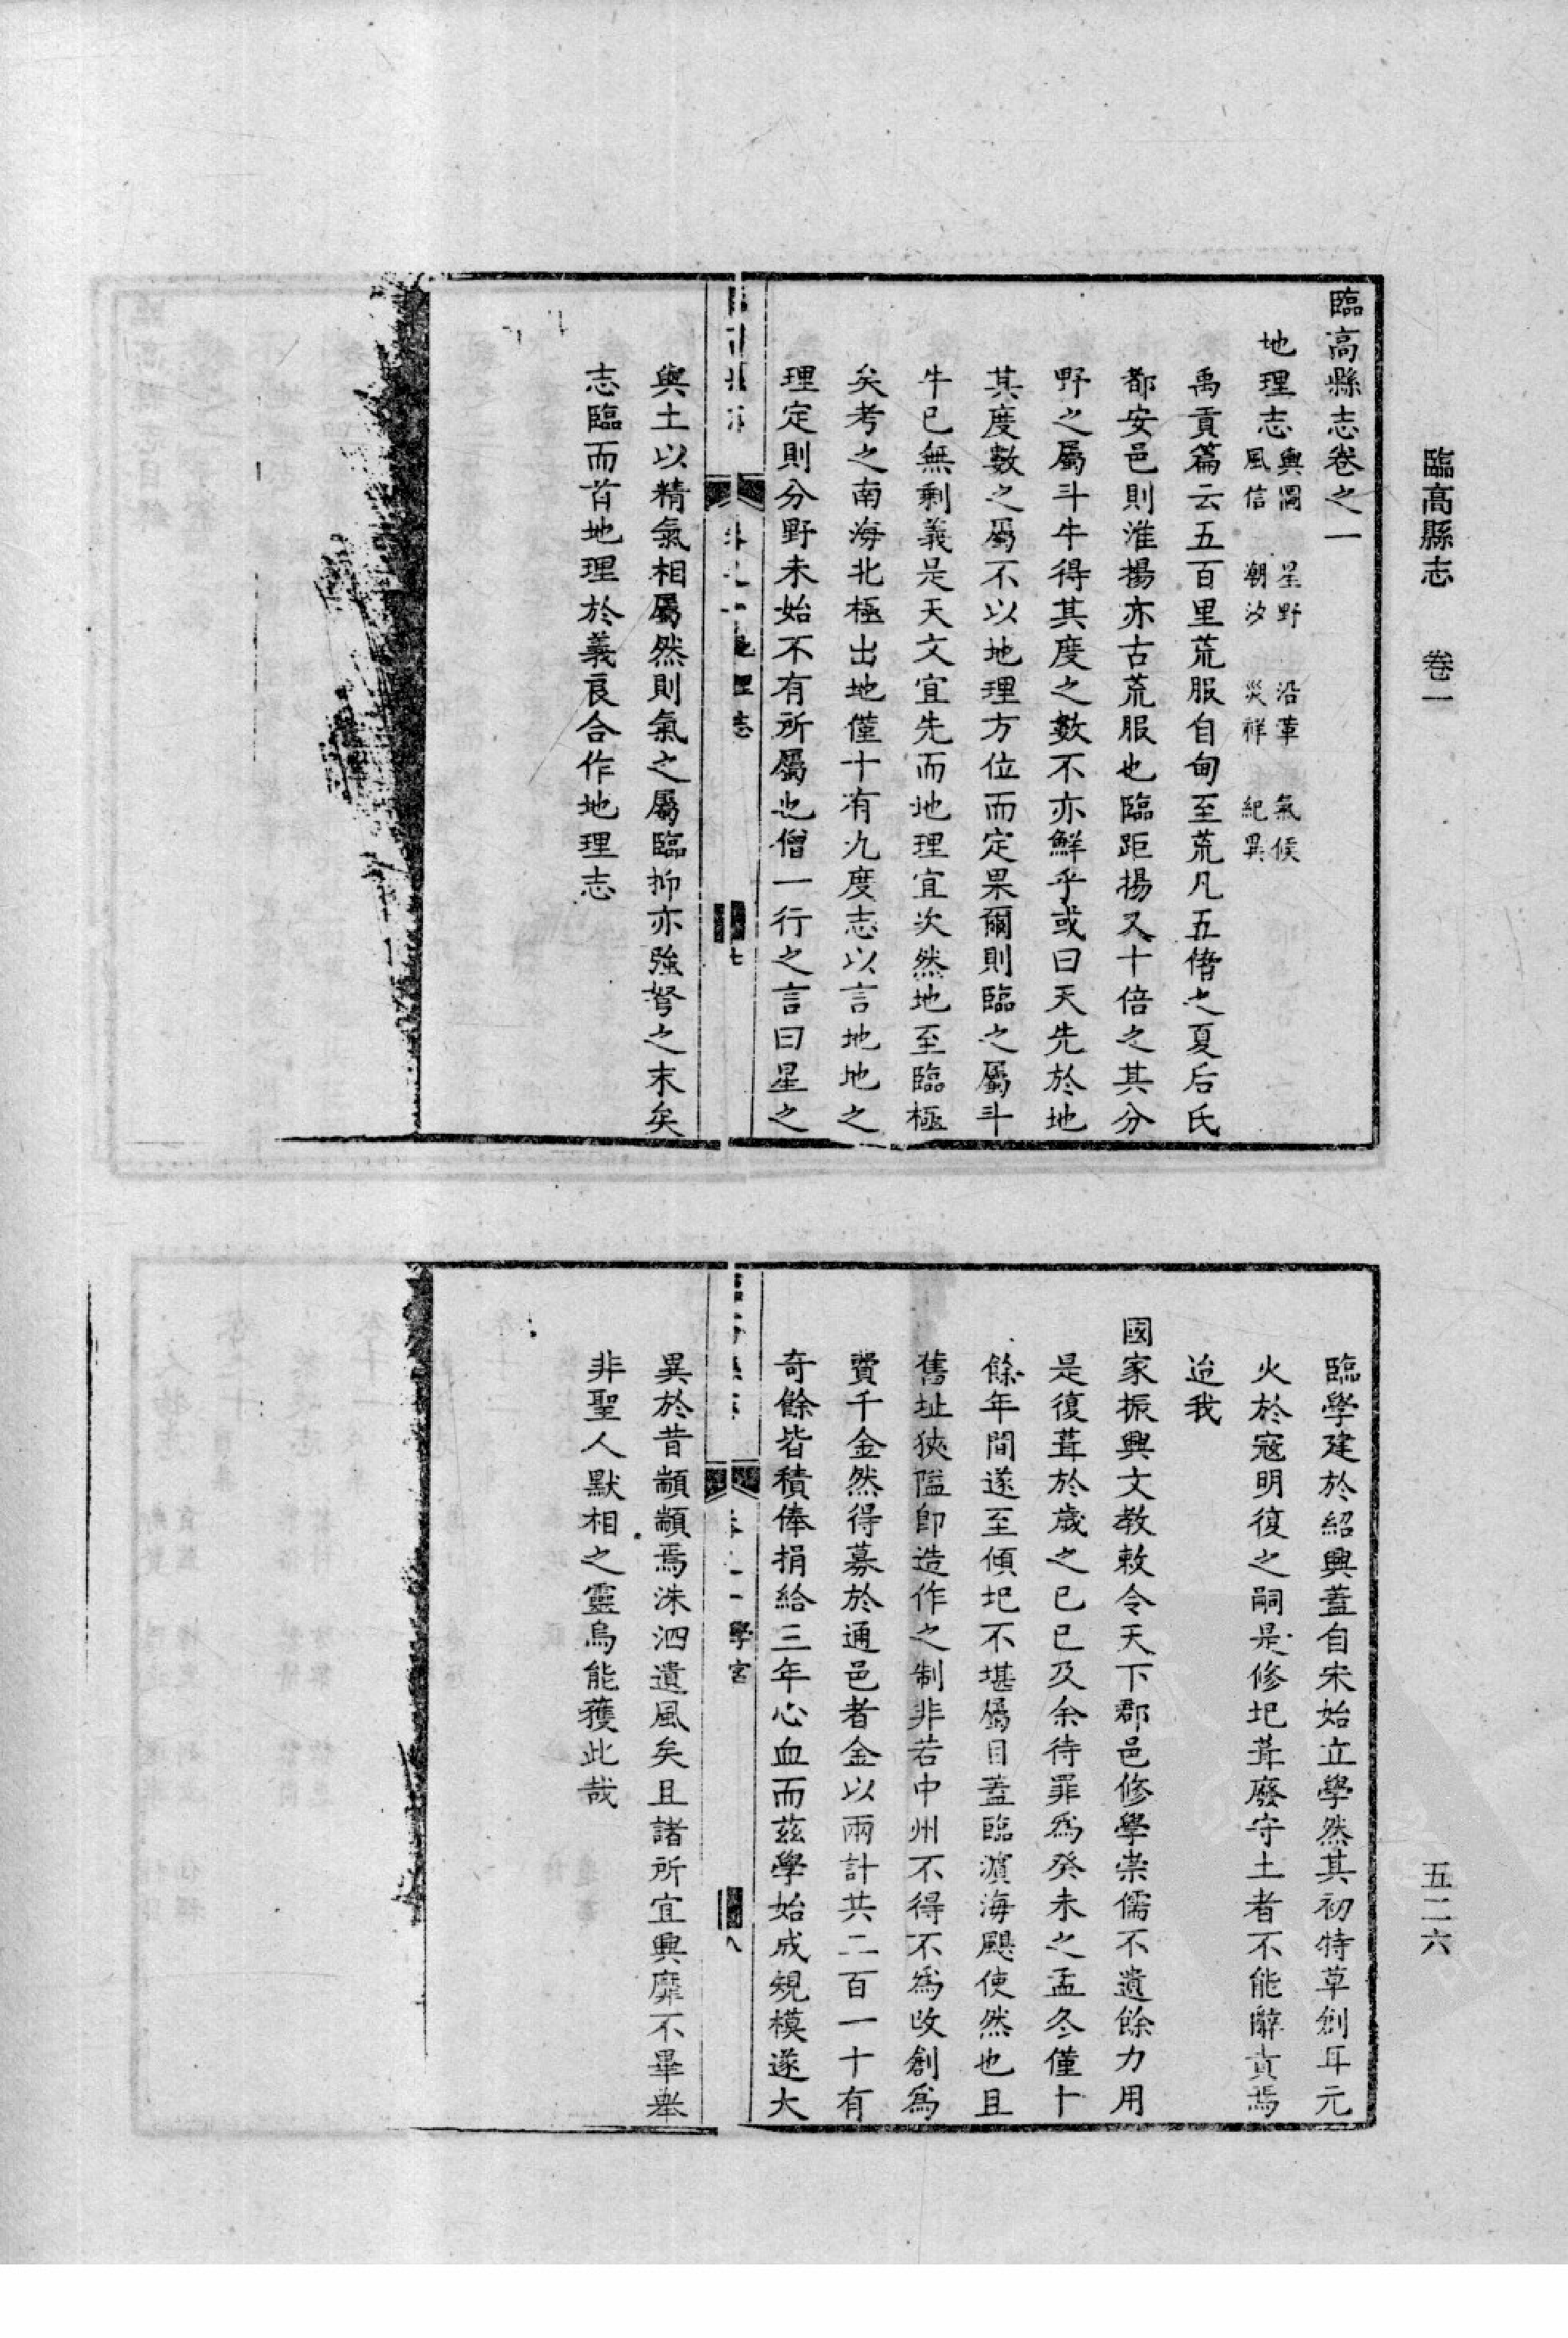 臨高縣志　卷一
五二六
臨高縣志卷之一
地理志
輿圖　星野　沿革　氣候
風信　潮汐　災祥　紀異
禹貢篇云五百里荒服自甸至荒凡五偹之夏后氏
都安邑則淮揚亦古荒服也臨距揚又十倍之其分
野之屬斗牛得其度之數不亦鮮乎或曰天先於地
其度數之屬不以地理方位而定果爾則臨之屬斗
牛已無剩義是天文宜先而地理宜次然地至臨極
矣考之南海北極出地僅十有九度志以言地地之
理定則分野未始不有所屬也僧一行之言曰星之
地理志
七
與土以精氣相屬然則氣之屬臨抑亦強弩之末矣
志臨而首地理於義良合作地理志
臨學建於紹興蓋自宋始立學然其初特草創耳元
火於寇明復之嗣是修圯葺廢守土者不能辭責焉
迨我
國家振興文教敕令天下郡邑修學崇儒不遺餘力用
是復葺於歲之已已及余待罪爲癸未之孟冬僅十
餘年間遂至傾圯不堪屬目蓋臨濵海颶使然也且
舊址狹隘卽造作之制非若中州不得不爲改創爲
費千金然得募於通邑者金以兩計共二百一十有
奇餘皆積俸捐給三年心血而茲學始成規模遂大
學宮
八
異於昔顒顒焉洙泗遺風矣且諸所宜興靡不畢舉
非聖人默相之靈烏能獲此哉